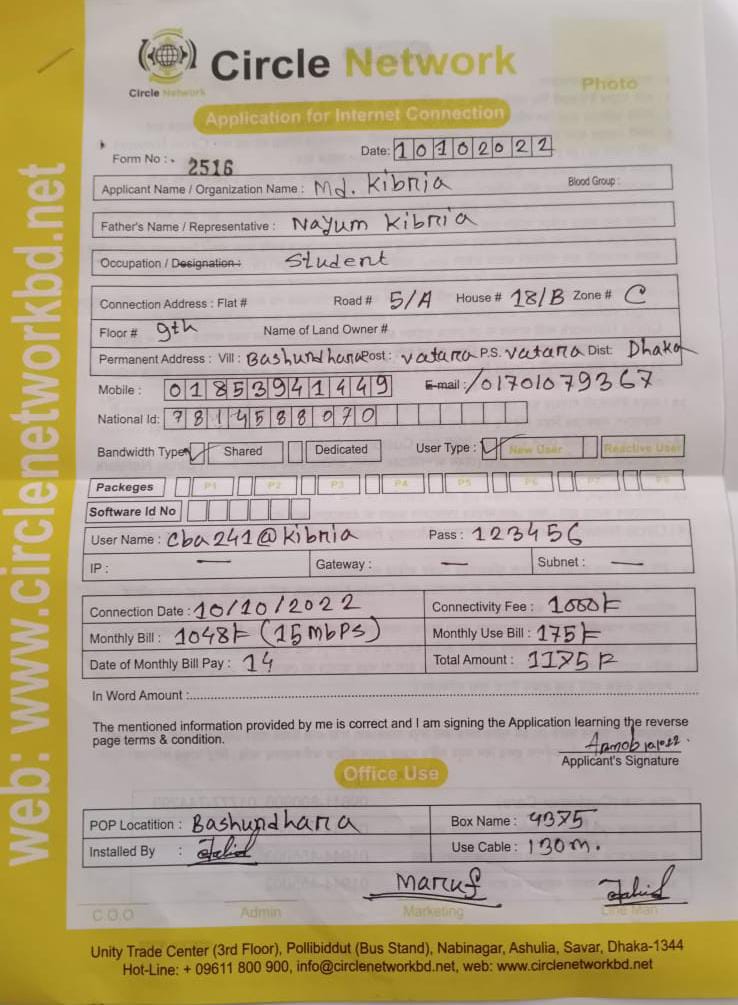 Circle Network
Circle Network
Photo
Application for Internet Connection
Form No : 2516 Date: 10102022
Applicant Name / Organization Name : Md. Kibria Blood Group :
Father's Name / Representative : Nayum Kibria
Occupation / Designation : Student
Connection Address : Flat # Road # 5/A House # 18/B Zone # C
Floor # 9th Name of Land Owner #
Permanent Address : Vill : Bashundhara Post : vatara P.S. vatara Dist: Dhaka
Mobile : 01853941449 E-mail : /01701079367
National Id: 7814588070
Bandwidth Type Shared Dedicated User Type : New User Reactive User
Packeges P1 P2 P3 P4 P5 P6 P7 P8
Software Id No
User Name : cba241@kibria Pass : 123456
IP : — Gateway : — Subnet : —
Connection Date : 10/10/2022 Connectivity Fee : 1000৳
Monthly Bill : 1048৳ (15mbps) Monthly Use Bill : 175৳
Date of Monthly Bill Pay : 14 Total Amount : 1175৳
In Word Amount :
The mentioned information provided by me is correct and I am signing the Application learning the reverse
page terms & condition.
Applicant's Signature
Office Use
POP Locatition : Bashundhara Box Name : 4375
Installed By : Use Cable : 130m.
Maruf
C.O.O Admin Marketing Line Man
Unity Trade Center (3rd Floor), Pollibiddut (Bus Stand), Nabinagar, Ashulia, Savar, Dhaka-1344
Hot-Line: + 09611 800 900, info@circlenetworkbd.net, web: www.circlenetworkbd.net
web: www.circlenetworkbd.net